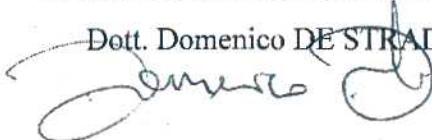 Dott. Domenico DE STRAD
Domenico D